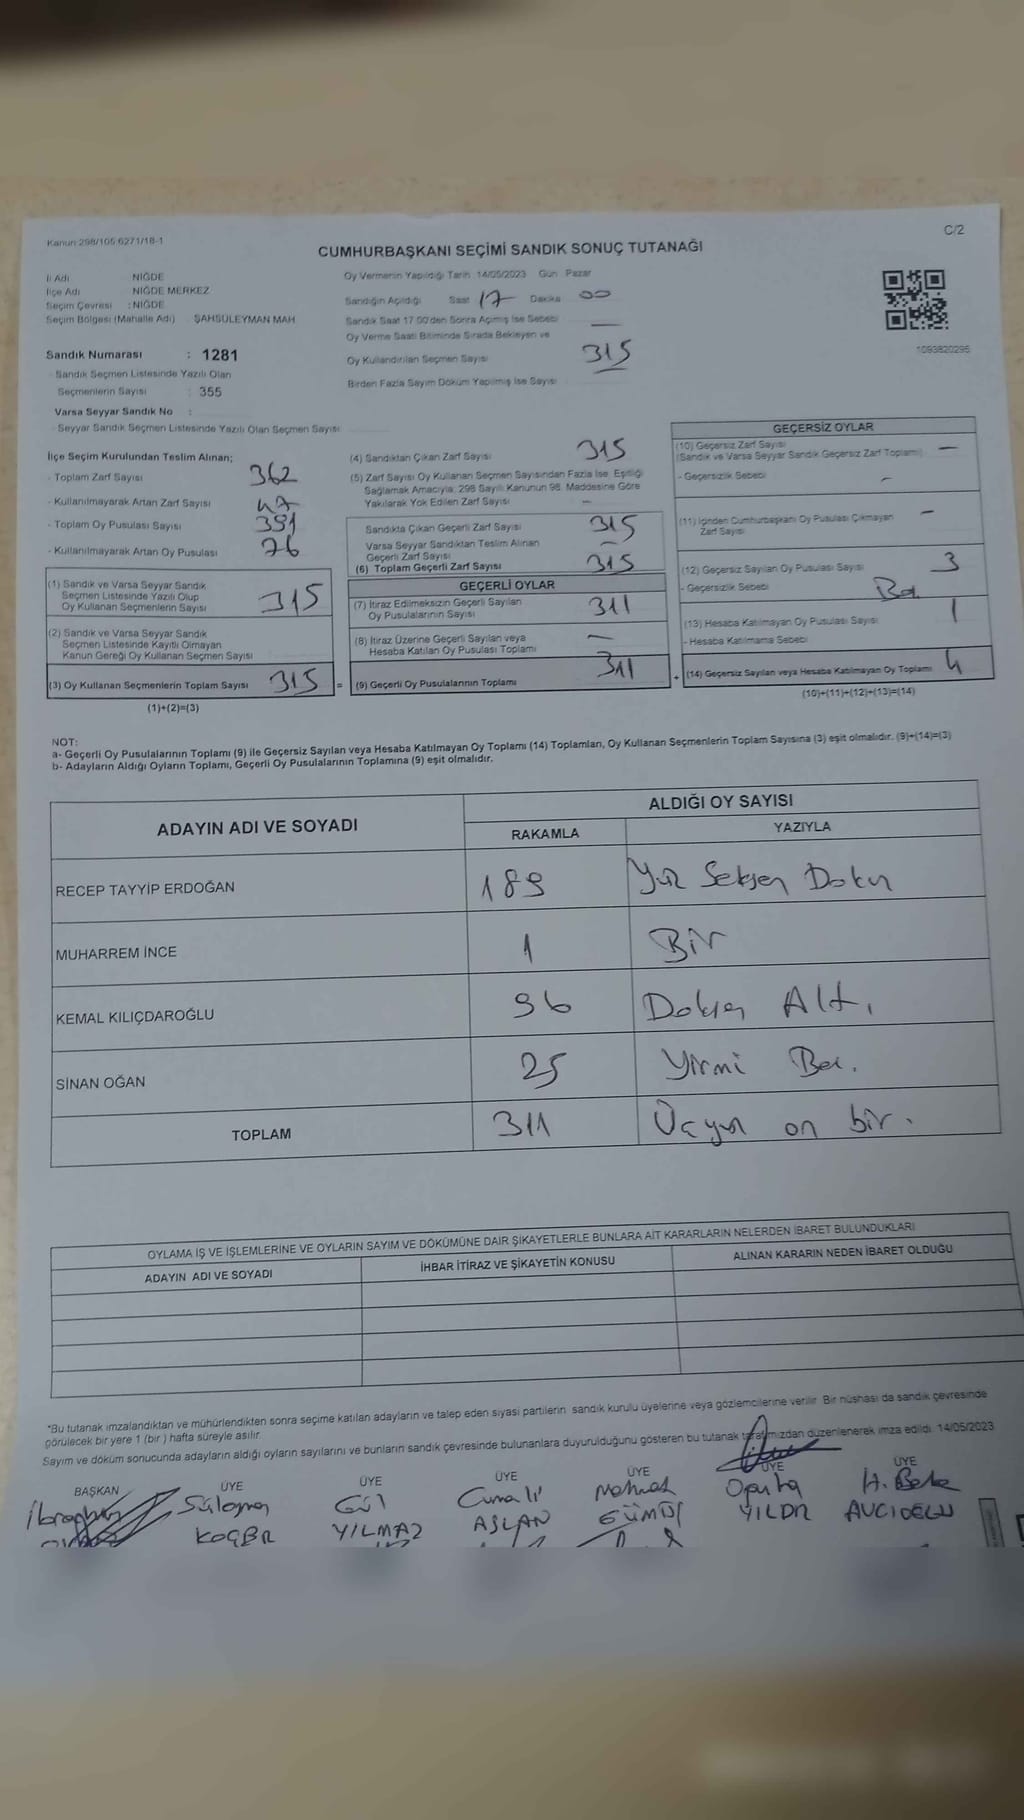 Kanun 298/105 6271/18-1
C/2
CUMHURBAŞKANI SEÇİMİ SANDIK SONUÇ TUTANAĞI
İl Adı NİĞDE
İlçe Adı NİĞDE MERKEZ
Seçim Çevresi : NİĞDE
Seçim Bölgesi (Mahalle Adı) ŞAHSÜLEYMAN MAH.
Sandık Numarası : 1281
- Sandık Seçmen Listesinde Yazılı Olan
Seçmenlerin Sayısı : 355
Varsa Seyyar Sandık No :
- Seyyar Sandık Seçmen Listesinde Yazılı Olan Seçmen Sayısı
Oy Vermenin Yapıldığı Tarih 14/05/2023 Gün Pazar
Sandığın Açıldığı Saat 17 Dakika 00
Sandık Saat 17:00'den Sonra Açımış İse Sebebi —
Oy Verme Saati Bitiminde Sırada Bekleyen ve
Oy Kullandırılan Seçmen Sayısı 315
Birden Fazla Sayım Döküm Yapılmış İse Sayısı
1093820295
İlçe Seçim Kurulundan Teslim Alınan;
- Toplam Zarf Sayısı 362
- Kullanılmayarak Artan Zarf Sayısı 47
- Toplam Oy Pusulası Sayısı 391
- Kullanılmayarak Artan Oy Pusulası 76
(1) Sandık ve Varsa Seyyar Sandık
Seçmen Listesinde Yazılı Olup
Oy Kullanan Seçmenlerin Sayısı 315
(2) Sandık ve Varsa Seyyar Sandık
Seçmen Listesinde Kayıtlı Olmayan
Kanun Gereği Oy Kullanan Seçmen Sayısı
(3) Oy Kullanan Seçmenlerin Toplam Sayısı 315 =
(1)+(2)=(3)
(4) Sandıktan Çıkan Zarf Sayısı 315
(5) Zarf Sayısı Oy Kullanan Seçmen Sayısından Fazla İse, Eşitliği
Sağlamak Amacıyla, 298 Sayılı Kanunun 98. Maddesine Göre
Yakılarak Yok Edilen Zarf Sayısı —
Sandıkta Çıkan Geçerli Zarf Sayısı 315
Varsa Seyyar Sandıktan Teslim Alınan
Geçerli Zarf Sayısı —
(6) Toplam Geçerli Zarf Sayısı 315
GEÇERLİ OYLAR
(7) İtiraz Edilmeksizin Geçerli Sayılan
Oy Pusulalarının Sayısı 311
(8) İtiraz Üzerine Geçerli Sayılan veya
Hesaba Katılan Oy Pusulası Toplamı —
(9) Geçerli Oy Pusulalarının Toplamı 311 +
GEÇERSİZ OYLAR
(10) Geçersiz Zarf Sayısı —
(Sandık ve Varsa Seyyar Sandık Geçersiz Zarf Toplamı)
- Geçersizlik Sebebi —
(11) İçinden Cumhurbaşkanı Oy Pusulası Çıkmayan —
Zarf Sayısı
(12) Geçersiz Sayılan Oy Pusulası Sayısı 3
- Geçersizlik Sebebi
(13) Hesaba Katılmayan Oy Pusulası Sayısı 1
- Hesaba Katılmama Sebebi
(14) Geçersiz Sayılan veya Hesaba Katılmayan Oy Toplamı 4
(10)+(11)+(12)+(13)=(14)
NOT:
a- Geçerli Oy Pusulalarının Toplamı (9) ile Geçersiz Sayılan veya Hesaba Katılmayan Oy Toplamı (14) Toplamları, Oy Kullanan Seçmenlerin Toplam Sayısına (3) eşit olmalıdır. (9)+(14)=(3)
b- Adayların Aldığı Oyların Toplamı, Geçerli Oy Pusulalarının Toplamına (9) eşit olmalıdır.
ADAYIN ADI VE SOYADI
ALDIĞI OY SAYISI
RAKAMLA YAZIYLA
RECEP TAYYİP ERDOĞAN 189 Yüz Seksen Dokuz
MUHARREM İNCE 1 Bir
KEMAL KILIÇDAROĞLU 96 Doksan Altı
SİNAN OĞAN 25 Yirmi Beş.
TOPLAM 311 Üçyüz on bir.
OYLAMA İŞ VE İŞLEMLERİNE VE OYLARIN SAYIM VE DÖKÜMÜNE DAİR ŞİKAYETLERLE BUNLARA AİT KARARLARIN NELERDEN İBARET BULUNDUKLARI
ADAYIN ADI VE SOYADI İHBAR İTİRAZ VE ŞİKAYETİN KONUSU ALINAN KARARIN NEDEN İBARET OLDUĞU
*Bu tutanak imzalandıktan ve mühürlendikten sonra seçime katılan adayların ve talep eden siyasi partilerin sandık kurulu üyelerine veya gözlemcilerine verilir. Bir nüshası da sandık çevresinde
görülecek bir yere 1 (bir) hafta süreyle asılır.
Sayım ve döküm sonucunda adayların aldığı oyların sayılarını ve bunların sandık çevresinde bulunanlara duyurulduğunu gösteren bu tutanak tarafımızdan düzenlenerek imza edildi. 14/05/2023
BAŞKAN ÜYE ÜYE ÜYE ÜYE ÜYE ÜYE
İbrahim Süleyman Gül Cumali Mehmet H. Bekir
YILMAZ ASLAN GÜMÜŞ AVCIOĞLU